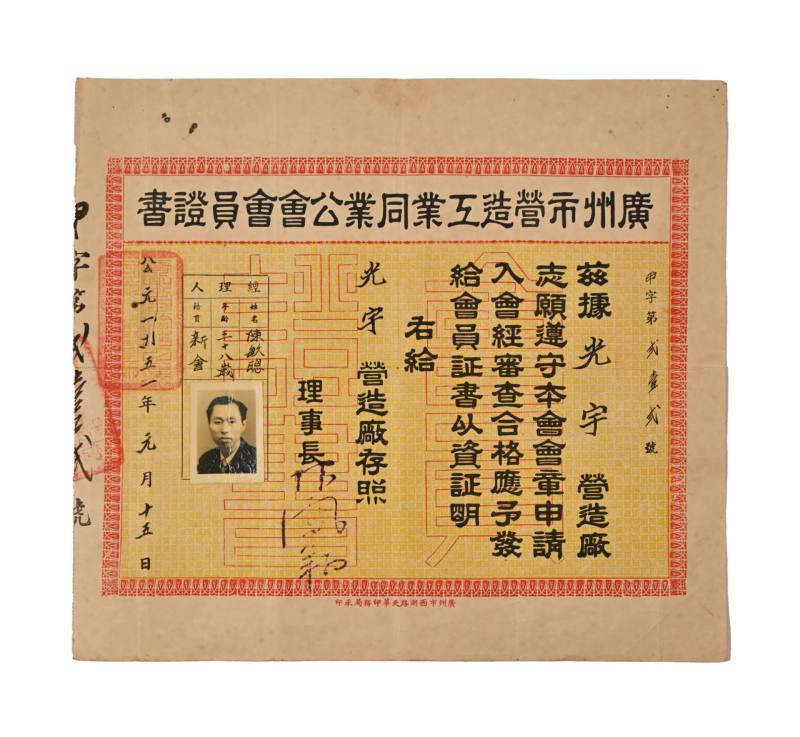 廣州市營造工業同業公會會員證書
甲字第弍壹弍號
茲據光宇營造廠
志願遵守本會會章申請
入會經審查合格應予發
給會員証書以資証明
右給
光宇營造廠存照
理事長
經理人
姓名陳敏聰
年齡三十八歲
籍貫新會
公元一九五一年元月十五日
甲字第弍壹弍號
廣州市西湖路天華印務局承印